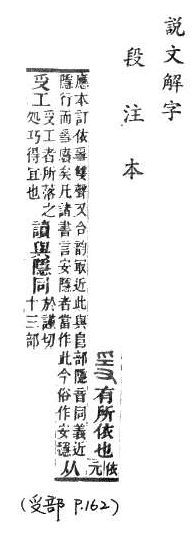 說文解字
段注本
𤔌有所依也依元
應本訂依𤔌雙聲又合韵㝡近此與𨸏部隱音同義近
隱行而𤔌廢矣凡諸書言安隱者當作此今俗作安穩从
𠬪工𠬪工者所落之処巧得宜也讀與隱同於謹切十三部
(𠬪部 P.162)